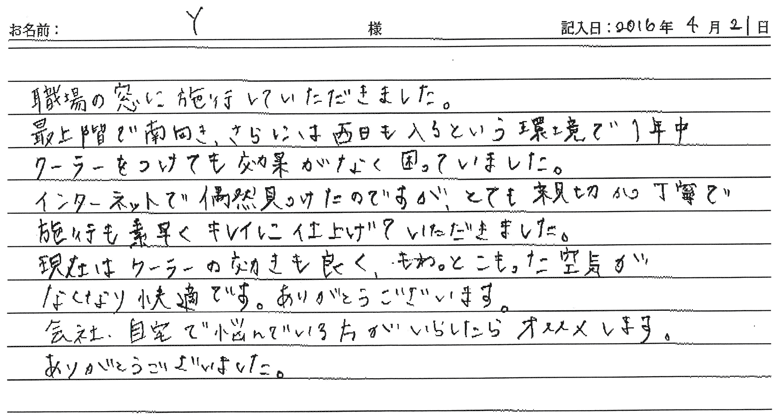 お名前： Y 様 記入日：2016年 4月 21日
職場の窓に施行していただきました。
最上階で南向き、さらには西日も入るという環境で1年中
クーラーをつけても効果がなく困っていました。
インターネットで偶然見つけたのですが、とても親切かつ丁寧で
施行も素早くキレイに仕上げていただきました。
現在はクーラーの効きも良く、もわっとこもった空気が
なくなり快適です。ありがとうございます。
会社、自宅で悩んでいる方がいらしたらオススメします。
ありがとうございました。